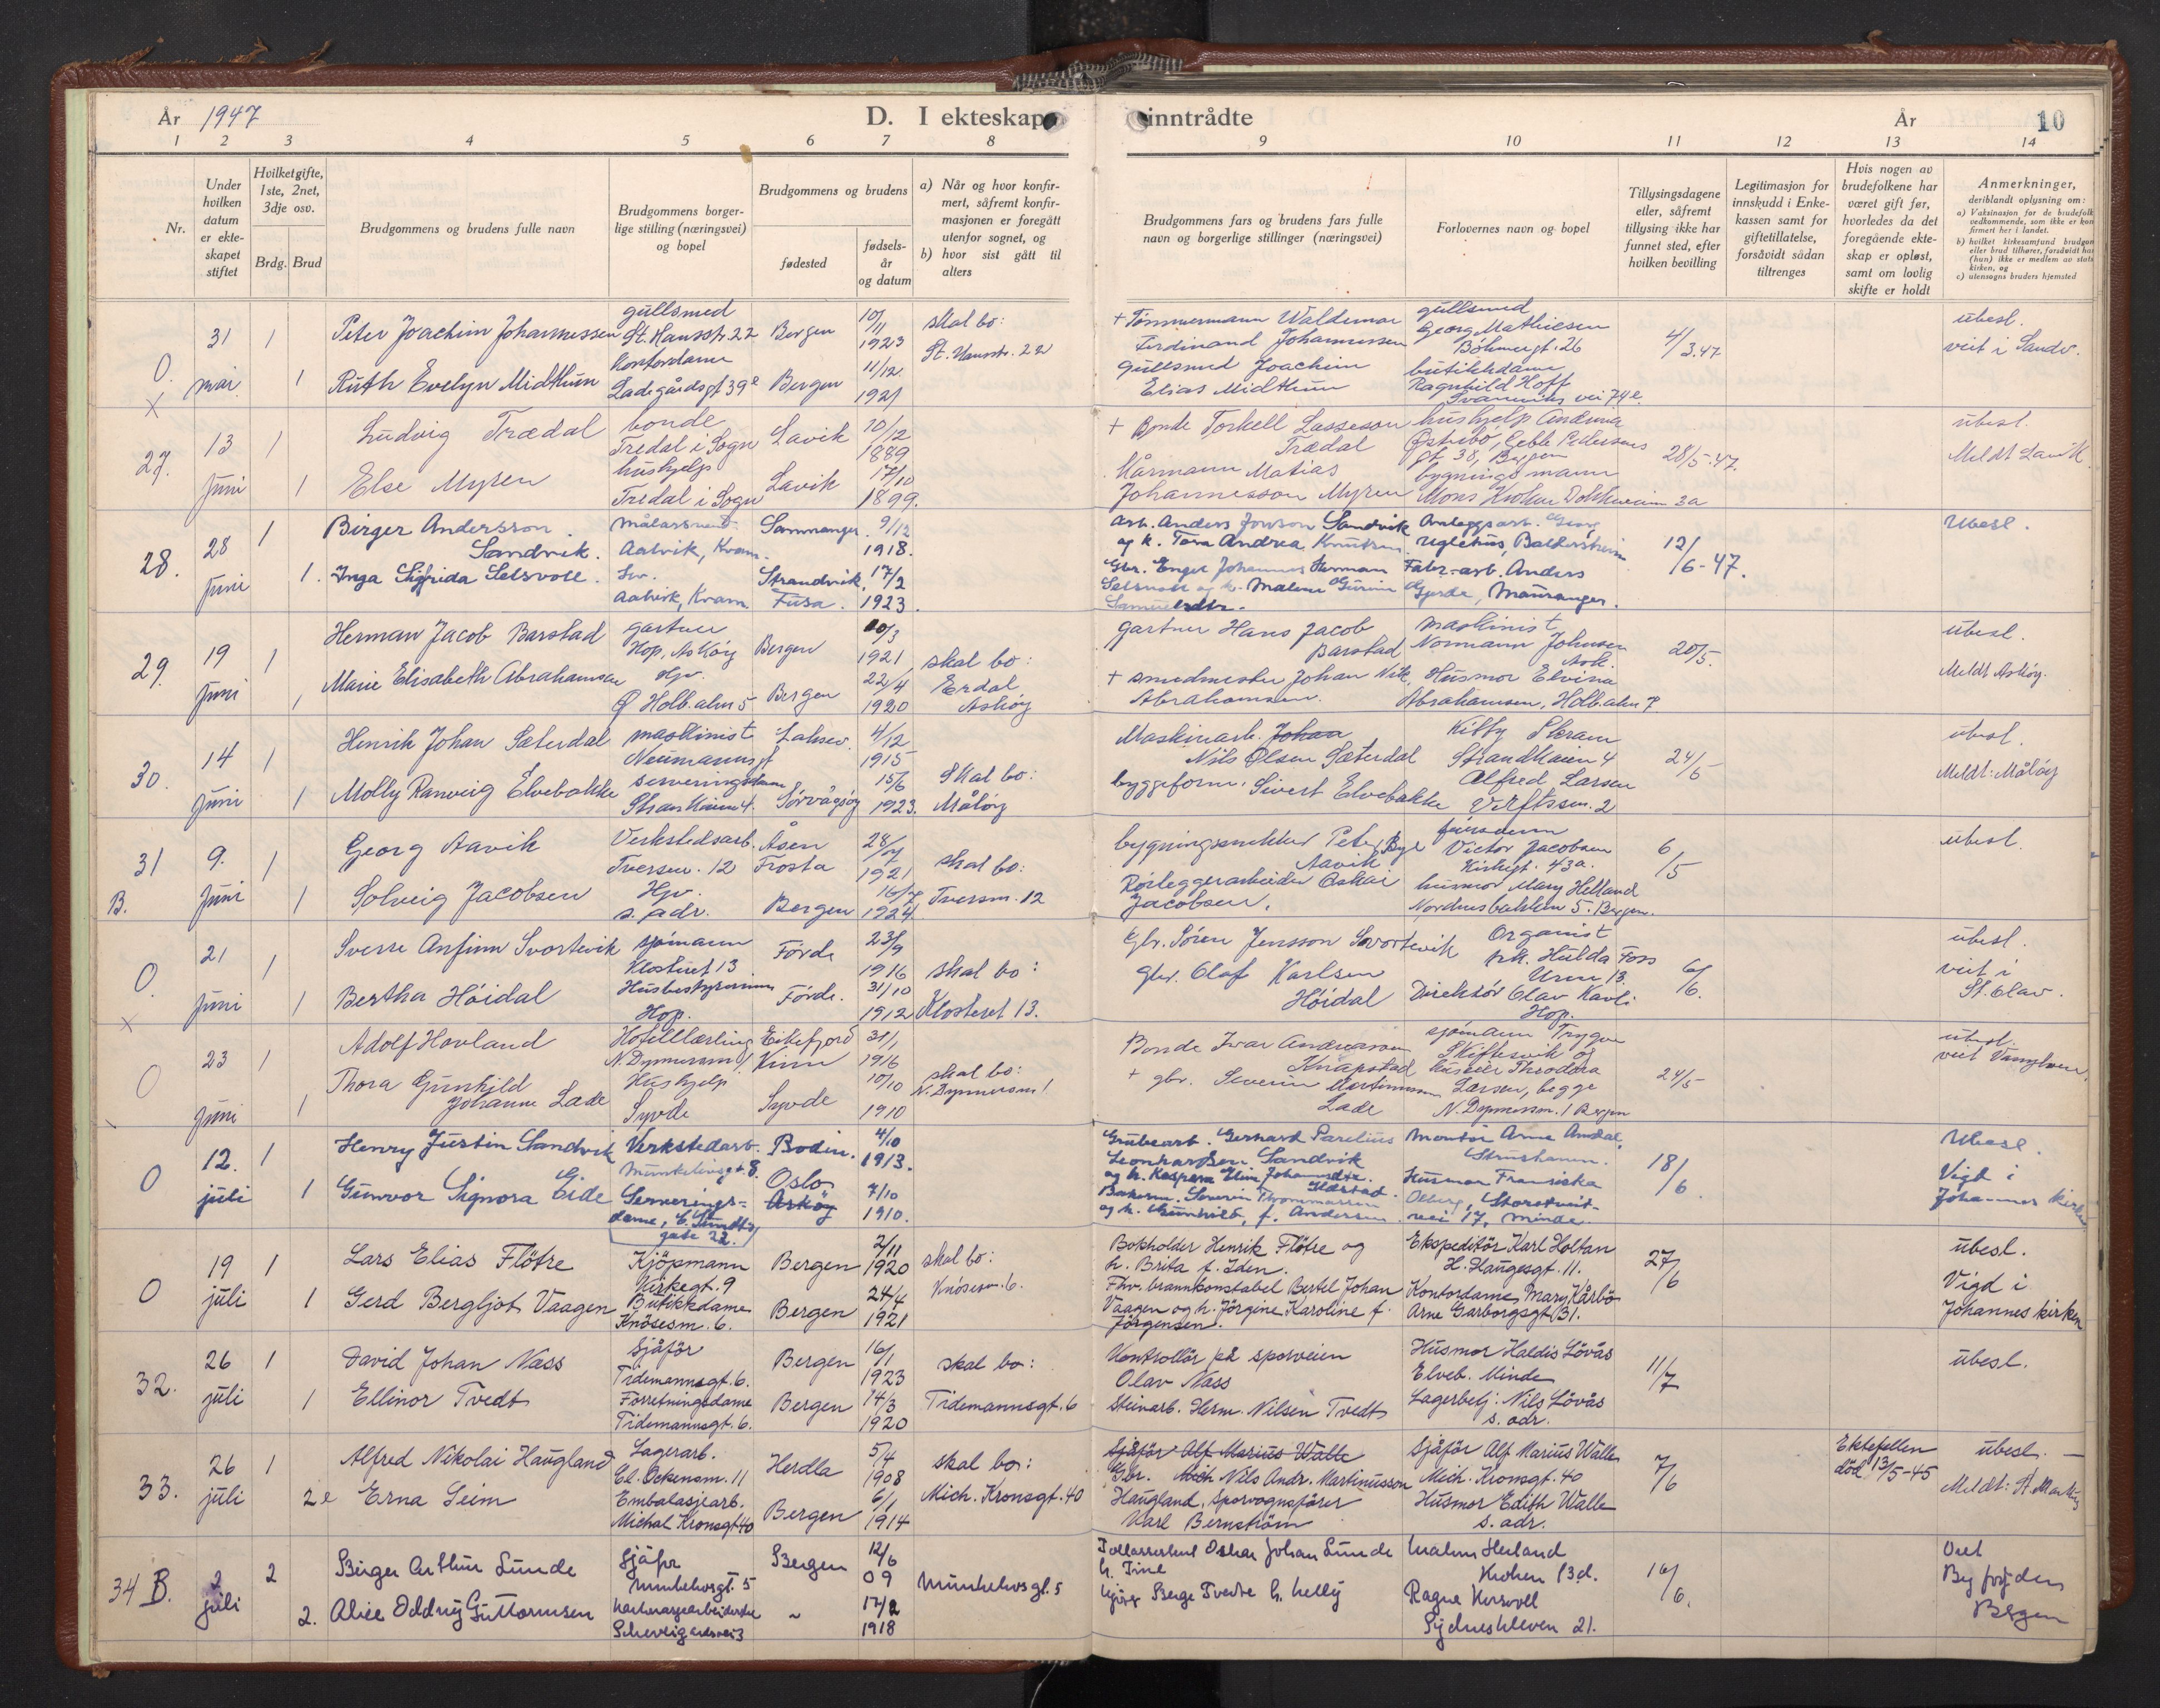 År 1947
D. I ekteskap
inntrådte
År
10
1 2 3 4 5 6 7 8
9 10 11 12 13 14
Nr.
Under hvilken datum er ekteskapet stiftet
Hvilket gifte, 1ste, 2net, 3dje osv.
Brdg. Brud
Brudgommens og brudens fulle navn
Brudgommens borgerlige stilling (næringsvei) og bopel
Brudgommens og brudens
fødested
fødselsår og datum
a) Når og hvor konfirmert, såfremt konfirmasjonen er foregått utenfor sognet, og
b) hvor sist gått til alters
Brudgommens fars og brudens fars fulle navn og borgerlige stillinger (næringsvei)
Forlovernes navn og bopel
Tillysingsdagene eller, såfremt tillysing ikke har funnet sted, efter hvilken bevilling
Legitimasjon for innskudd i Enkekassen samt for giftetillatelse, forsåvidt sådan tiltrenges
Hvis nogen av brudefolkene har været gift før, hvorledes da det foregående ekteskap er opløst, samt om lovlig skifte er holdt
Anmerkninger, deriblandt oplysning om:
a) Vaksinasjon for de brudefolk vedkommende, som ikke er konfirmert her i landet.
b) hvilket kirkesamfund brudgom eller brud tilhører, forsåvidt han (hun) ikke er medlem av statskirken, og
c) utensogns bruders hjemsted
O. x
31 mai 1
Peter Joachim Johannessen
gullsmed St. Hansstr. 22
Bergen
10/11 1923
skal bo: St. Hansstr. 22
+ Tømmermann Waldemar Ferdinand Johannessen
gullsmed Georg Mathiesen Böhmergt. 26
4/3.47
ubesl.
1
Ruth Evelyn Midthun
kontordame Ladegårdsgt 39
Bergen
11/12 1921
Gullsmed Joachim Elias Midthun
butikkdame Ragnhild Hoff
27.
13 juni 1
Ludvig Trædal
bonde Tredal i Sogn
Lavik
10/12 1889
+ Bonde Torkell Lasseson Trædal
hushjelp
28/5-47.
ubesl.
Meldt Lavik
1
Else Myren
hushjelp Tredal i Sogn
Lavik
17/10 1899.
Matias Johannesson Myren
bygningsmann Mons
3a
28.
28 juni 1
Birger Andersson Sandvik.
Aalvik, Kvam.
Samnanger.
9/12 1918.
Arb. Anders Jonson Sandvik og k.
Anleggsarb.
12/6-47.
Ubesl.
1.
Inga Sigfrida Selsvoll.
Aalvik, Kvam
Strandvik, Fusa.
17/2 1923.
Gbr. Engel Johannes Herman Selsvoll
Fabr.-arb. Anders Gjerde, Mauranger.
29.
19 juni 1
Herman Jacob Barstad
gartner Hop, Askøy
Bergen
10/3 1921
skal bo: Erdal Askøy
gartner Hans Jacob Barstad
maskinist Normann Johnsen Ask.
20/5.
ubesl.
Meldt Askøy.
1
Marie Elisabeth Abrahamsen
Hjv. Ø Holb. alm 5
Bergen
22/4 1920
+ smedmester Johan Nik. Abrahamsen
Husmor Elvina Abrahamsen, Holb. alm 7
30.
14 juni 1
Henrik Johan Sæterdal
maskinist Neumannsgt
Laksev.
4/12 1915
skal bo: Måløy
Maskinarb. Johan Nils Olsen Sæterdal
Kitty Skram Strandkaien 4
24/5
ubesl.
Meldt: Måløy
1
Molly Ranveig Elvebakke
serveringsdame Strandkaien 4.
Sørvågsøy
15/6 1923.
byggeform. Sivert Elvebakke
Alfred Larsen Verftssm. 2
31 B.
9. juni 1
Georg Aavik
Verkstedsarb. Tversm. 12
Åsen Frosta
28/7 1921
skal bo: Tversm. 12
bygningssnekker Peter Aavik
Victor Jacobsen Kirkegt. 43a.
6/5
ubesl.
1
Solveig Jacobsen
Hjv. s. adr.
Bergen
16/ 1924
Rørleggerarbeider Oskar Jacobsen.
husmor Mary Helland Nordnesbakken 5. Bergen.
O. x
21 juni 1
Sverre Anfinn Svortevik
sjømann Klosteret 13
Førde
23/9 1916
skal bo: Klosteret 13.
Gbr. Søren Jensson Svortevik
Organist frk. Hulda Foss
6/6.
ubesl.
St. Olav.
1
Bertha Høidal
Husbestyrerinne Hop.
Førde.
31/10 1912
gbr. Olaf Karlsen Høidal
Direktør Olav Kavli Hop.
O
23 juni 1
Adolf Hovland
Hotellærling N. Dypmersm. 1
Eikefjord Kinn
31/1 1916
skal bo: N. Dypmersm 1
Bonde Ivar Andersson Knapstad
sjømann Trygve Skiftesvik og
24/5
ubesl.
1
Thora Gunhild Johanne Lade
Hushjelp Syvde
Syvde
10/10 1910
+ gbr. Severin Martinussen Lade
Theodora Larsen, begge N. Dypmersm. 1 Bergen
O
12. juli 1
Henry Justin Sandvik
Verkstedarb. Munkelivsgt. 8.
Bodin.
4/10 1913.
Grubearb. Gerhard Parelius Leonhardsen Sandvik
Montør Arne Amdal,
18/6.
Ubesl.
Vigd i Johannes kirken
1
Gunvor Signora Eide
Serveringsdame, C. Sundtsgate 22.
Oslo Askøy
7/10 1910.
Husmor Fransiska
Storetveitvei 17, Minde.
O
19 juli 1
Lars Elias Flötre
Kjöpmann Kirkegt. 9
Bergen
2/11 1920
skal bo: Knösesm. 6.
Bokholder Henrik Flötre og h. Brita f. Iden.
Ekspeditör Karl Holtan H. Haugesgt. 11.
27/6
ubesl.
Vigd i Johannes kirken
1
Gerd Bergljot Vaagen
Butikkdame Knösesm. 6.
Bergen
24/4 1921
Fhv. brannkonstabel Bertel Johan Vaagen og h. Jörgine Karoline f. Jörgensen.
Kontordame Mary Kårbö Arne Garborgsgt 31.
32.
26 juli 1
David Johan Næss
sjåför Tidemannsgt. 6.
Bergen
16/1 1923
skal bo: Tidemannsgt. 6
Kontrollör på sporveien Olav Næss
Husmor Haldis Lövås Elveb. Minde
11/7
ubesl.
1
Ellinor Tvedt
Forretningsdame Tidemannsgt. 6.
Bergen
14/3 1920
Steinarb. Herm. Nilsen Tvedt
Lagerbetj: Nils Lövås s. adr.
33.
26 juli 1
Alfred Nikolai Haugland
Lagerarb. El. Ockensm. 11
Herdla
5/4 1908
skal bo: Mich. Kronsgt. 40
Sjåför Alf Marius Walle
Gbr. Nils Andr. Martinusson Haugland,
sjåför Alf Marius Walle Mich. Kronsgt. 40
7/6
Ektefellen död 13/5-45
ubesl. —
Meldt: St. Markus
2 e
Erna Seim
Embalasjearb. Michal Kronsgt 40
Bergen
6/1 1914
sporvognsförer Karl Bernström
Husmor Edith Walle s. adr.
34 B.
2 juli 2
Birger Arthur Lunde
sjåfør Munkelivsgt. 5
Bergen
12/6 09
Munkelivsgt. 5
Tollassistent Oskar Johan Lunde h. Tine
16/6.
Viet Byfogden Bergen
2.
Alice Oddny Guttormsen
17/2 1918
Berge Tvedte h. Nelly
Ragna Korsvoll Sydneskleven 21.